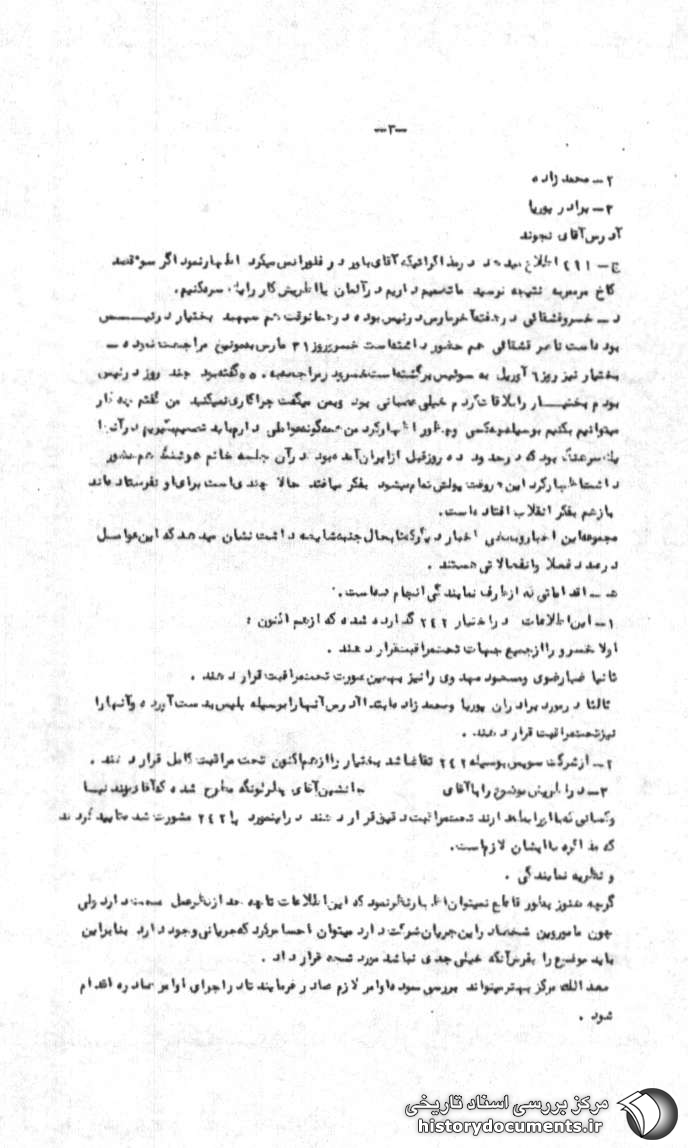 -۳-
۲- محمد زاده
۳- برادر پوریا
آدرس آقای نجوند
ج- ۴۹۱ اطلاع میدهد در مذاکراتیکه آقای یاور در فلورانس میکرد اظهار نمود اگر سوءقصد
کاخ مرمر به نتیجه نرسید ما تصمیم داریم در آلمان یا اطریش کار را یکسره کنیم.
د- خسرو قشقائی در هفته آخر مارس در رئیس بوده در همانوقت هم سپهبد بختیار در رئیس
بوده است ناصر قشقائی هم حضور داشته است خسرو روز ۳۱ مارس به مونیخ مراجعت نموده -
بختیار نیز روز ۶ آوریل به سوئیس برگشته است خسرو در مراجعت گفته بود چند روز در نیس
بودم بختیار را ملاقات کردم خیلی عصبانی بود وبمن میگفت چرا کاری نمیکنید من گفتم چه کار
میتوانیم بکنیم بوسیله چه کسی وچطور اظهار کرد من همه گونه عواملی دارم باید تصمیم بگیریم در آنجا
یک سرهنگ بود که در حدود ده روز قبل از ایران آمده بود در آن جلسه خانم هوشنگ هم حضور
داشت اظهار کرد این هر وقت پولش تمام میشود بفکر میافتد حالا چندی است برای او نفرستاده اند
باز هم بفکر انقلاب افتاده است.
مجموعه این اخبار و بعضی اخبار دیگر که تا بحال جنبه شایعه داشت نشان میدهد که این عوامل
در صدد فعل و انفعالاتی هستند.
ه- اقداماتی که از طرف نمایندگی انجام شده است.
۱- این اطلاعات در اختیار ۲۴۲ گذارده شده که از هم اکنون:
اولا خسرو را از جمیع جهات تحت مراقبت قرار دهند.
ثانیا ضیاء رضوی ومسعود مهدوی را نیز بهمین صورت تحت مراقبت قرار دهند.
ثالثا در مورد برادران پوریا ومحمد زاده ابتدا آدرس آنها را بوسیله پلیس بدست آورده وآنها را
نیز تحت مراقبت قرار دهند.
۲- از شرکت سویس بوسیله ۲۴۲ تقاضا شد بختیار را از هم اکنون تحت مراقبت کامل قرار دهند.
۳- در اطریش موضوع را با آقای جانشین آقای پطرلونگه مطرح شده که آقا
وکسانی که با او رابطه دارند تحت مراقبت دقیق قرار دهند در اینمورد با ۲۴۲ مشورت شد تایید کردند
که مذاکره با ایشان لازم است.
و نظریه نمایندگی.
گرچه هنوز بطور قاطع نمیتوان اظهار نظر نمود که این اطلاعات تا چه حد از نظر عمل صحت دارد ولی
چون مامورین شخصا در این جریان شرکت دارد میتوان احساس کرد که جریانی وجود دارد بنابراین
باید موضوع را بفرض آنکه خیلی جدی نباشد مورد توجه قرار داد.
معذالک مرکز بهتر میتواند بررسی نموده اوامر لازم صادر فرمایند تا در اجرای اوامر صادره اقدام
شود.
مرکز بررسی اسناد تاریخی
historydocuments.ir